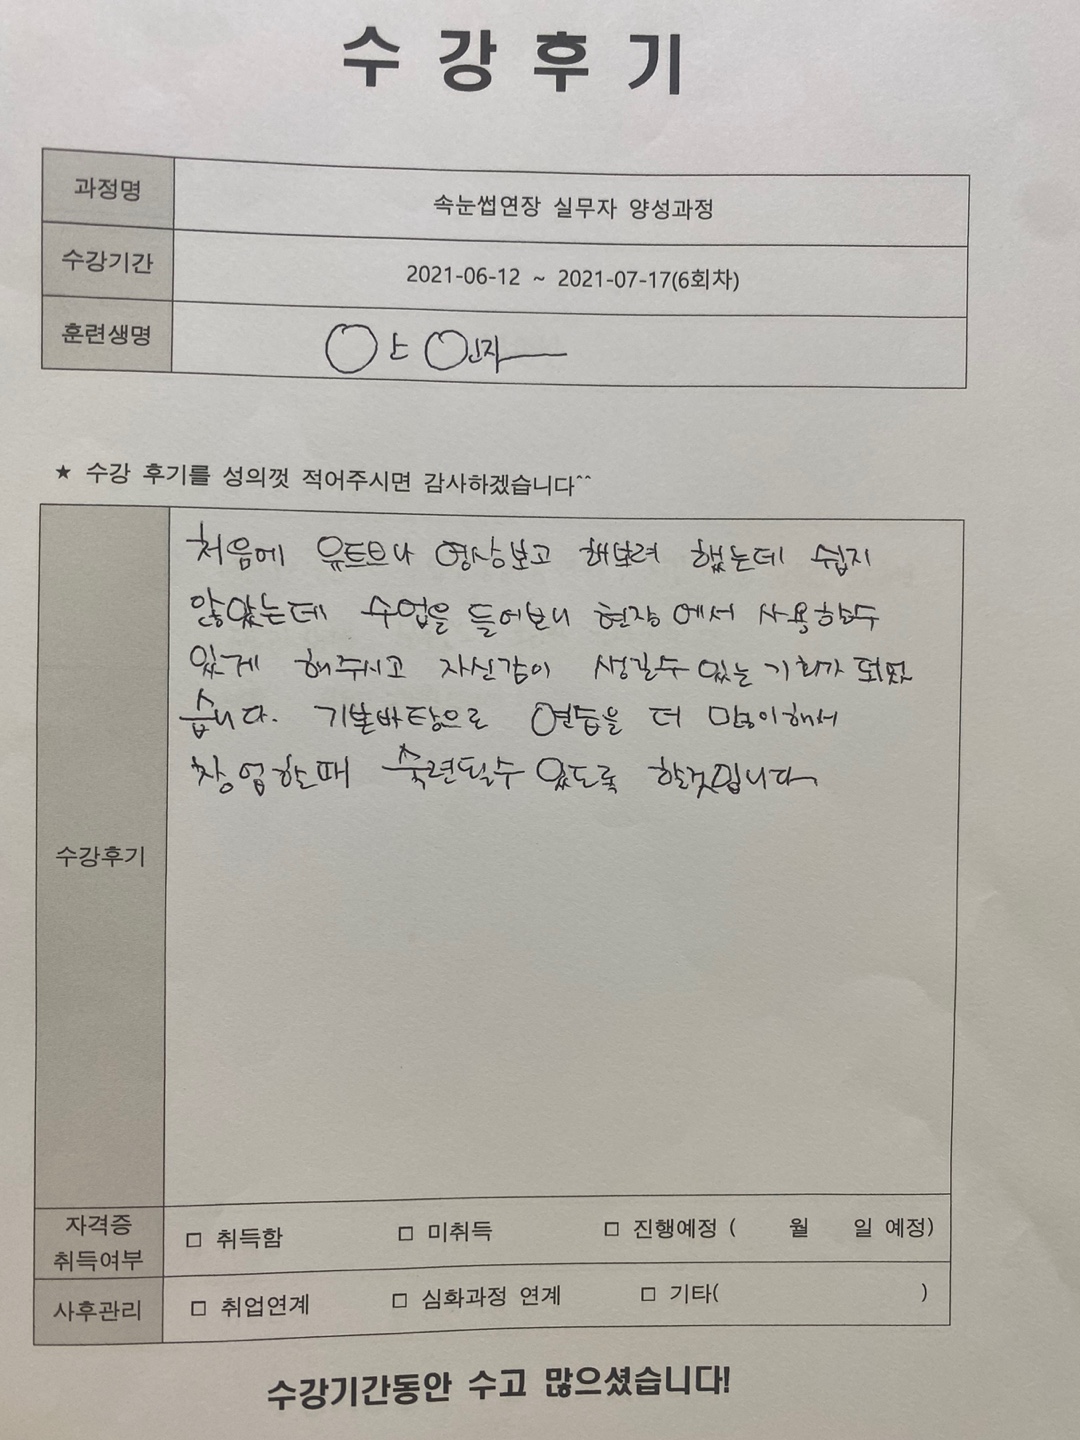 수강후기
과정명 속눈썹연장 실무자 양성과정
수강기간 2021-06-12 ~ 2021-07-17(6회차)
훈련생명
★ 수강 후기를 성의껏 적어주시면 감사하겠습니다^^
처음에 유트브나 영상보고 해보려 했는데 쉽지
않았는데 수업을 들어보니 현장에서 사용할수
있게 해주시고 자신감이 생길수 있는 기회가 되었
습니다. 기본바탕으로 연습을 더 많이해서
창업할때 숙련될수 있도록 할것입니다
수강후기
자격증
취득여부
□ 취득함 □ 미취득 □ 진행예정 ( 월 일 예정)
사후관리 □ 취업연계 □ 심화과정 연계 □ 기타( )
수강기간동안 수고 많으셨습니다!